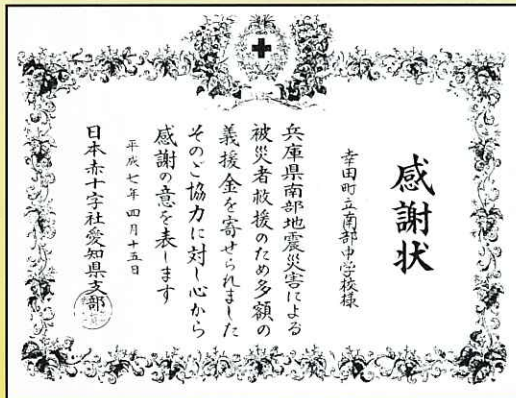 感謝状
幸田町立南部中学校様
兵庫県南部地震災害による
被災者救援のため多額の
義援金を寄せられました
そのご協力に対し心から
感謝の意を表します
平成七年四月十五日
日本赤十字社愛知県支部